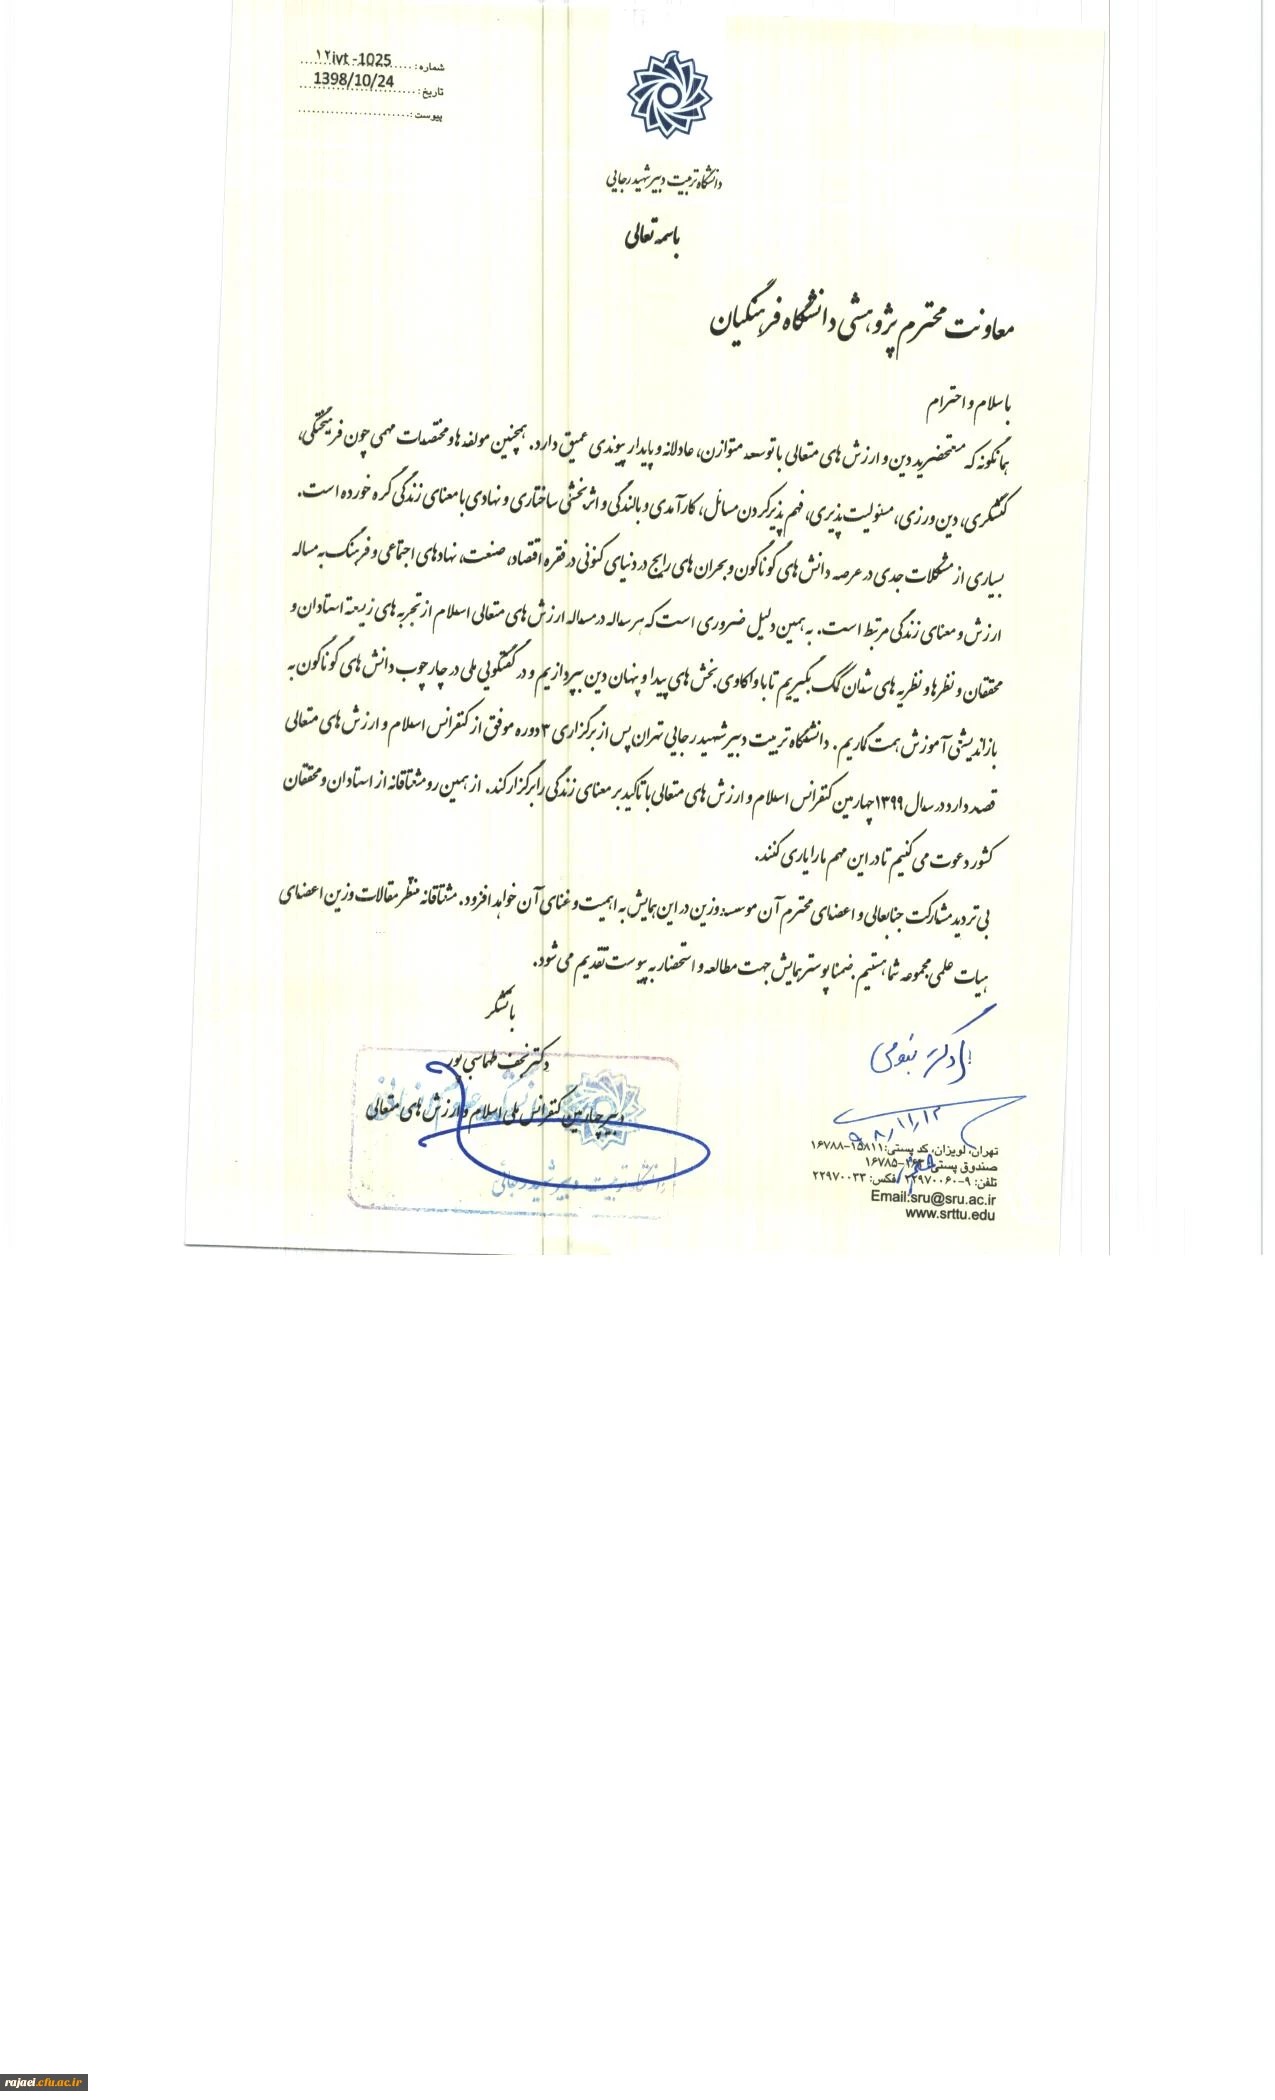 شماره: ۱۲ivt -1025
تاریخ: 1398/10/24
پیوست:
دانشگاه تربیت دبیر شهید رجایی
باسمه تعالی
معاونت محترم پژوهشی دانشگاه فرهنگیان
با سلام و احترام
همانگونه که مستحضرید دین و ارزش های متعالی با توسعه متوازن، عادلانه و پایدار پیوندی عمیق دارد. همچنین مولفه ها و مختصات مهمی چون فرهیختگی،
کنشگری، دین ورزی، مسئولیت پذیری، فهم پذیر کردن مسائل، کارآمدی و بالندگی و اثربخشی ساختاری و نهادی با معنای زندگی گره خورده است.
بسیاری از مشکلات جدی در عرصه دانش های گوناگون و بحران های رایج در دنیای کنونی در فقره اقتصاد، صنعت، نهادهای اجتماعی و فرهنگ به مساله
ارزش و معنای زندگی مرتبط است. به همین دلیل ضروری است که هر ساله در مساله ارزش های متعالی اسلام از تجربه های زیسته استادان و
محققان و نظرها و نظریه های شان کمک بگیریم تا با واکاوی بخش های پیدا و پنهان دین بپردازیم و در گفتگویی ملی در چارچوب دانش های گوناگون به
بازاندیشی آموزش همت گماریم. دانشگاه تربیت دبیر شهید رجایی تهران پس از برگزاری ۳ دوره موفق از کنفرانس اسلام و ارزش های متعالی
قصد دارد در سال ۱۳۹۹ چهارمین کنفرانس اسلام و ارزش های متعالی با تاکید بر معنای زندگی را برگزار کند. از همین رو مشتاقانه از استادان و محققان
کشور دعوت می کنیم تا در این مهم ما را یاری کنند.
بی تردید مشارکت جنابعالی و اعضای محترم آن موسسه وزین در این همایش به اهمیت و غنای آن خواهد افزود. مشتاقانه منتظر مقالات وزین اعضای
هیات علمی مجموعه شما هستیم. ضمنا پوستر همایش جهت مطالعه و استحضار به پیوست تقدیم می شود.
با تشکر
دکتر نجف طهماسبی پور
دبیر چهارمین کنفرانس ملی اسلام و ارزش های متعالی
دانشگاه تربیت دبیر شهید رجائی
۹۸/۱۱/۱۲
تهران، لویزان، کد پستی: ۱۵۸۱۱-۱۶۷۸۸
صندوق پستی: ۱۶۷۸۵-
تلفن: ۹-۲۲۹۷۰۰۶۰ فکس: ۲۲۹۷۰۰۳۳
Email:sru@sru.ac.ir
www.srttu.edu
rajaei.cfu.ac.ir